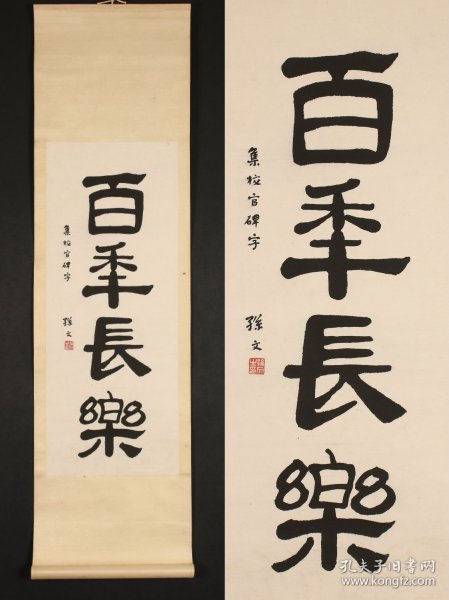 百年長樂
集校官碑字
孫文
百年長樂
集校官碑字
孫文
孔夫子旧书网
www.kongfz.com